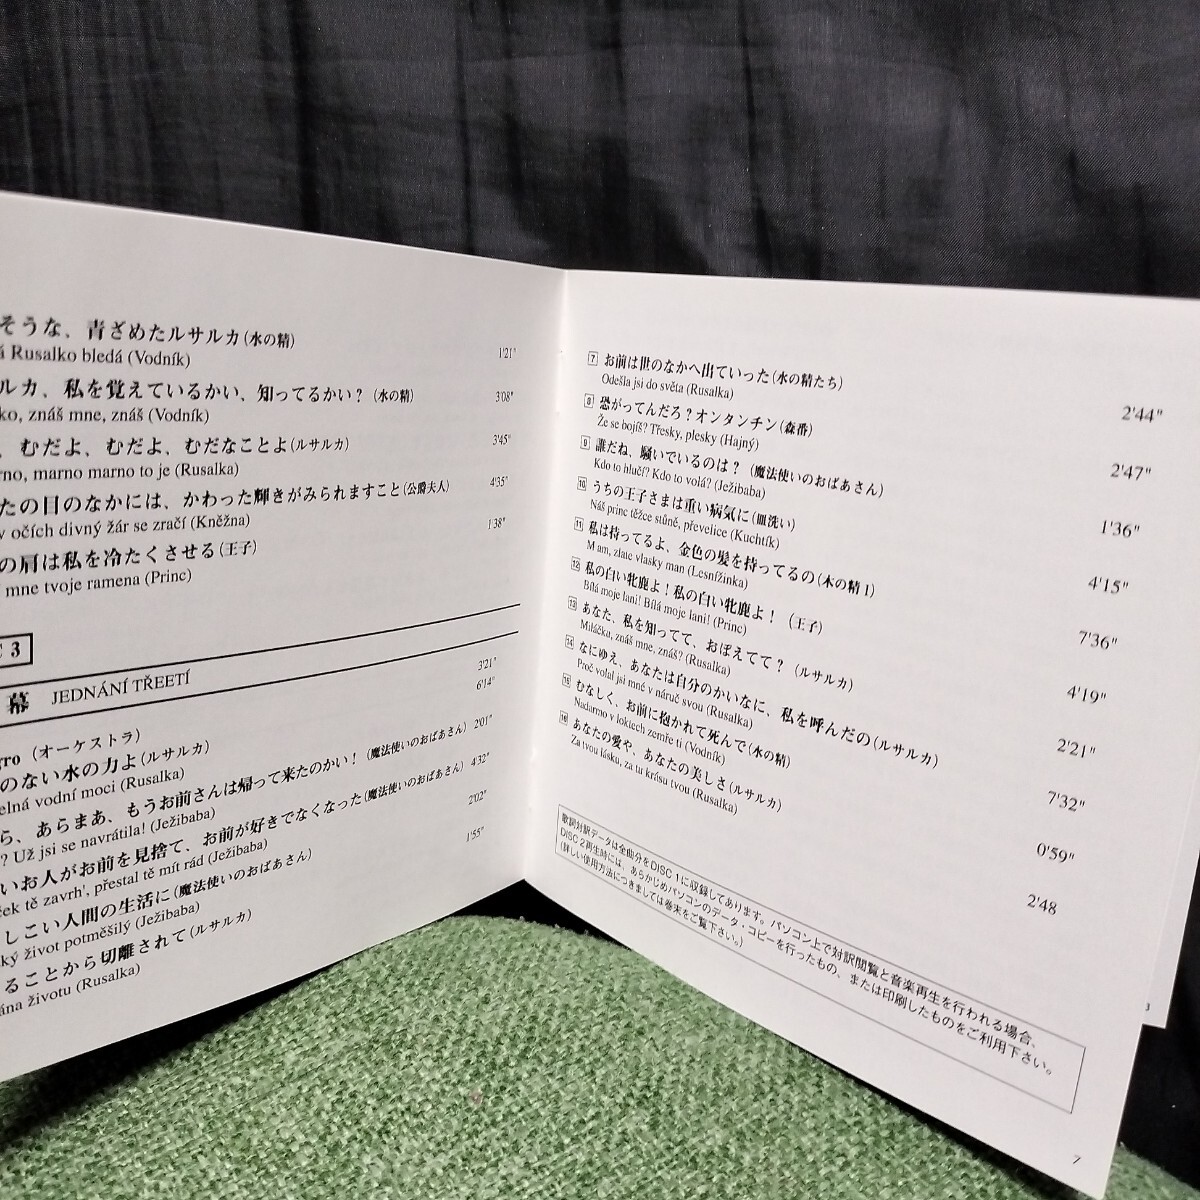 そうな、青ざめたルサルカ(水の精)
á Rusalko bledá (Vodník) 1'21"
ルカ、私を覚えているかい、知ってるかい？(水の精)
ko, znáš mne, znáš (Vodník) 3'08"
、むだよ、むだよ、むだなことよ(ルサルカ)
rno, marno marno to je (Rusalka) 3'45"
たの目のなかには、かわった輝きがみられますこと(公爵夫人)
v očích divný žár se zračí (Kněžna) 4'35"
の肩は私を冷たくさせる(王子)
mne tvoje ramena (Princ) 1'38"
3
幕 JEDNÁNÍ TŘEETÍ
gro (オーケストラ) 3'21"
のない水の力よ(ルサルカ)
elná vodní moci (Rusalka) 6'14"
ら、あらまあ、もうお前さんは帰って来たのかい！(魔法使いのおばあさん)
? Už jsi se navrátila! (Ježibaba) 2'01"
いお人がお前を見捨て、お前が好きでなくなった(魔法使いのおばあさん)
ček tě zavrh', přestal tě mít rád (Ježibaba) 4'32"
しこい人間の生活に(魔法使いのおばあさん)
ký život potměšilý (Ježibaba) 2'02"
ることから切離されて(ルサルカ)
ána životu (Rusalka) 1'55"
7 お前は世のなかへ出ていった(水の精たち)
Odešla jsi do světa (Rusalka) 2'44"
8 恐がってんだろ？オンタンチン(森番)
Že se bojíš? Třesky, plesky (Hajný) 2'47"
9 誰だね、騒いでいるのは？(魔法使いのおばあさん)
Kdo to hlučí? Kdo to volá? (Ježibaba) 1'36"
10 うちの王子さまは重い病気に(皿洗い)
Náš princ těžce stůně, převelice (Kuchtík) 4'15"
11 私は持ってるよ、金色の髪を持ってるの(木の精1)
Mam, zlate vlasky man (Lesnížinka) 7'36"
12 私の白い牝鹿よ！私の白い牝鹿よ！(王子)
Bílá moje laní! Bílá moje laní! (Princ) 4'19"
13 あなた、私を知ってて、おぼえてて？(ルサルカ)
Miláčku, znáš mne, znáš? (Rusalka) 2'21"
14 なにゆえ、あなたは自分のかいなに、私を呼んだの(ルサルカ)
Proč volal jsi mné v náruč svou (Rusalka) 7'32"
15 むなしく、お前に抱かれて死んで(水の精)
Nadarmo v lokiech zemře ti (Vodník) 0'59"
16 あなたの愛や、あなたの美しさ(ルサルカ)
Za tvou lásku, za tu krásu tvou (Rusalka) 2'48
歌詞対訳データは全曲分をDISC 1に収録してあります。パソコン上で対訳閲覧と音楽再生を行われる場合、
DISC 2再生時には、あらかじめパソコンのデータ・コピーを行ったもの、または印刷したものをご利用下さい。
(詳しい使用方法につきましては巻末をご覧下さい。)
7